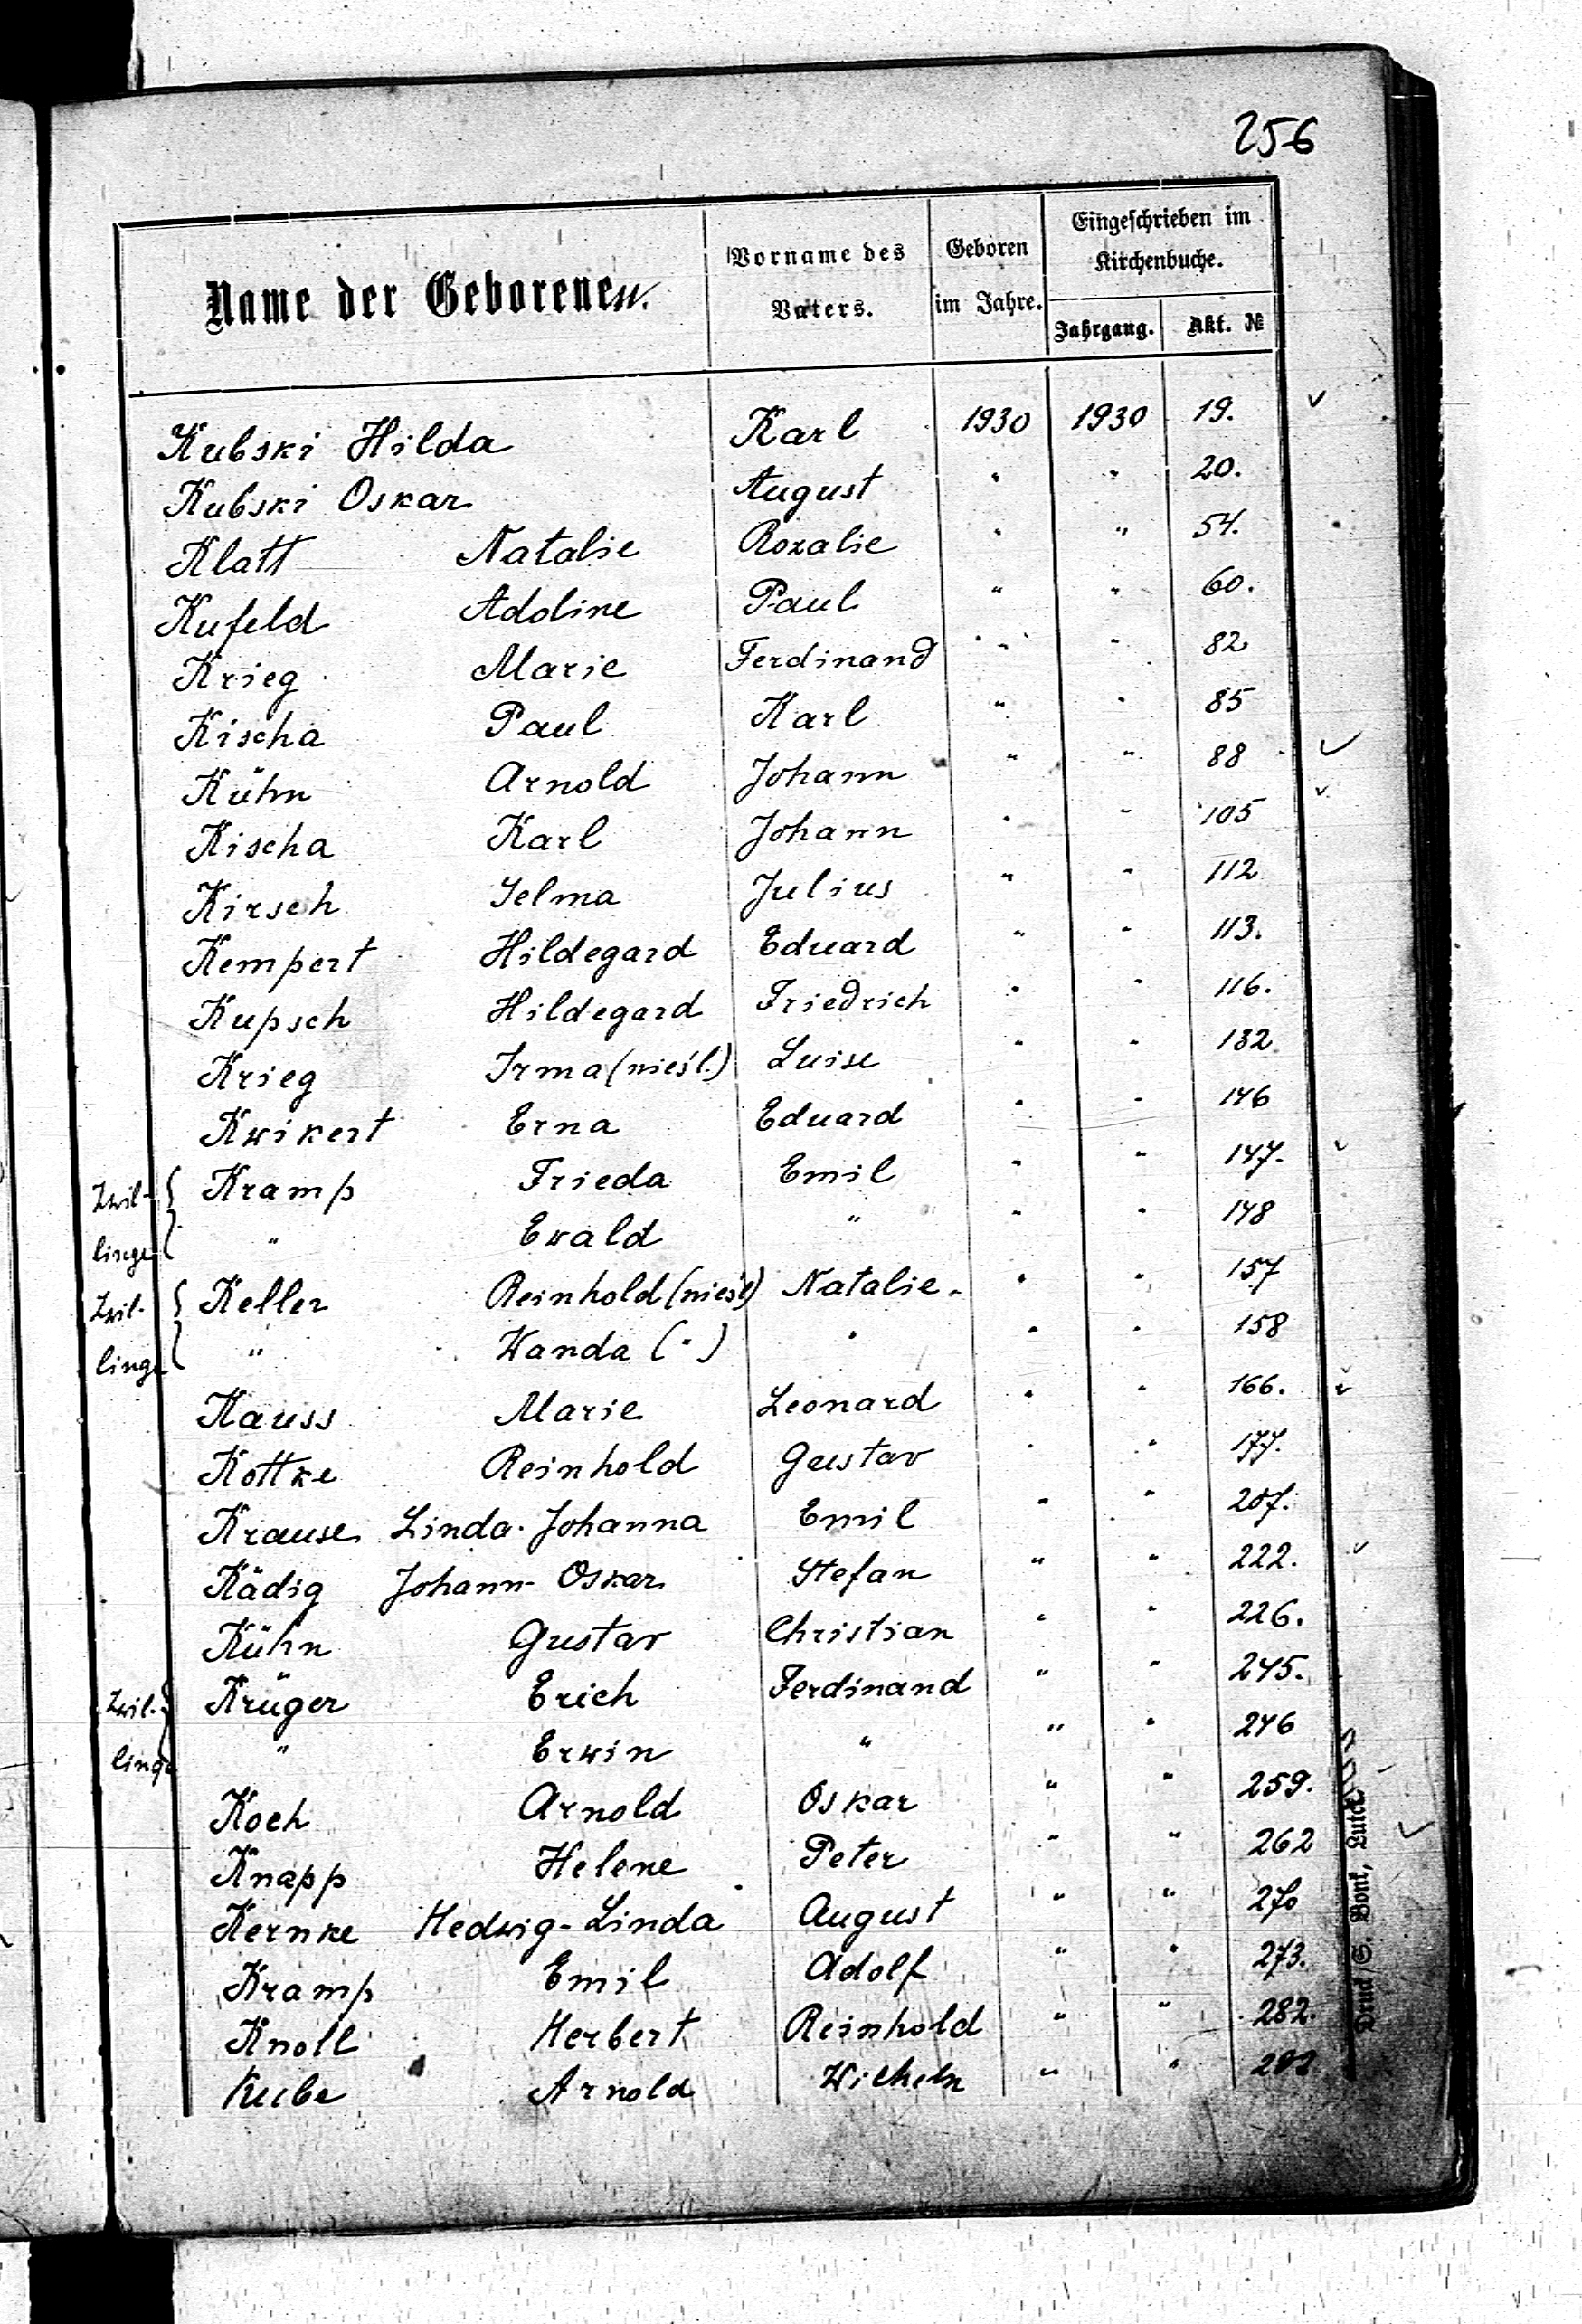 256
Name der Geborenen.
Vorname des Vaters.
Geboren im Jahre.
Eingeschrieben im Kirchenbuche.
Jahrgang. Akt. №
Kubski Hilda Karl 1930 1930 19.
Kubski Oskar August " " 20.
Klatt Natalie Rozalie " " 54.
Kufeld Adoline Paul " " 60.
Krieg Marie Ferdinand " " 82
Kischa Paul Karl " " 85
Kühn Arnold Johann " " 88
Kischa Karl Johann " " 105
Kirsch Selma Julius " " 112
Kempert Hildegard Eduard " " 113.
Kupsch Hildegard Friedrich " " 116.
Krieg Irma (nieśl.) Luise " " 132
Kwikert Erna Eduard " " 146
Zwil- Kramp Frieda Emil " " 147.
linge " Ewald " " " 148
Zwil- Keller Reinhold (nieśl) Natalie " " 157
linge " Wanda (") " " " 158
Kauss Marie Leonard " " 166.
Kottke Reinhold Gustav " " 177.
Krause Linda-Johanna Emil " " 207.
Kädig Johann-Oskar Stefan " " 222.
Kühn Gustav Christian " " 226.
Zwil- Krüger Erich Ferdinand " " 245.
linge " Erwin " " " 246
Koch Arnold Oskar " " 259.
Knapp Helene Peter " " 262
Kernke Hedwig-Linda August " " 270
Kramp Emil Adolf " " 273.
Knoll Herbert Reinhold " " 282.
Kube Arnold Wilhelm " "
Druck S. Bonk, Luck